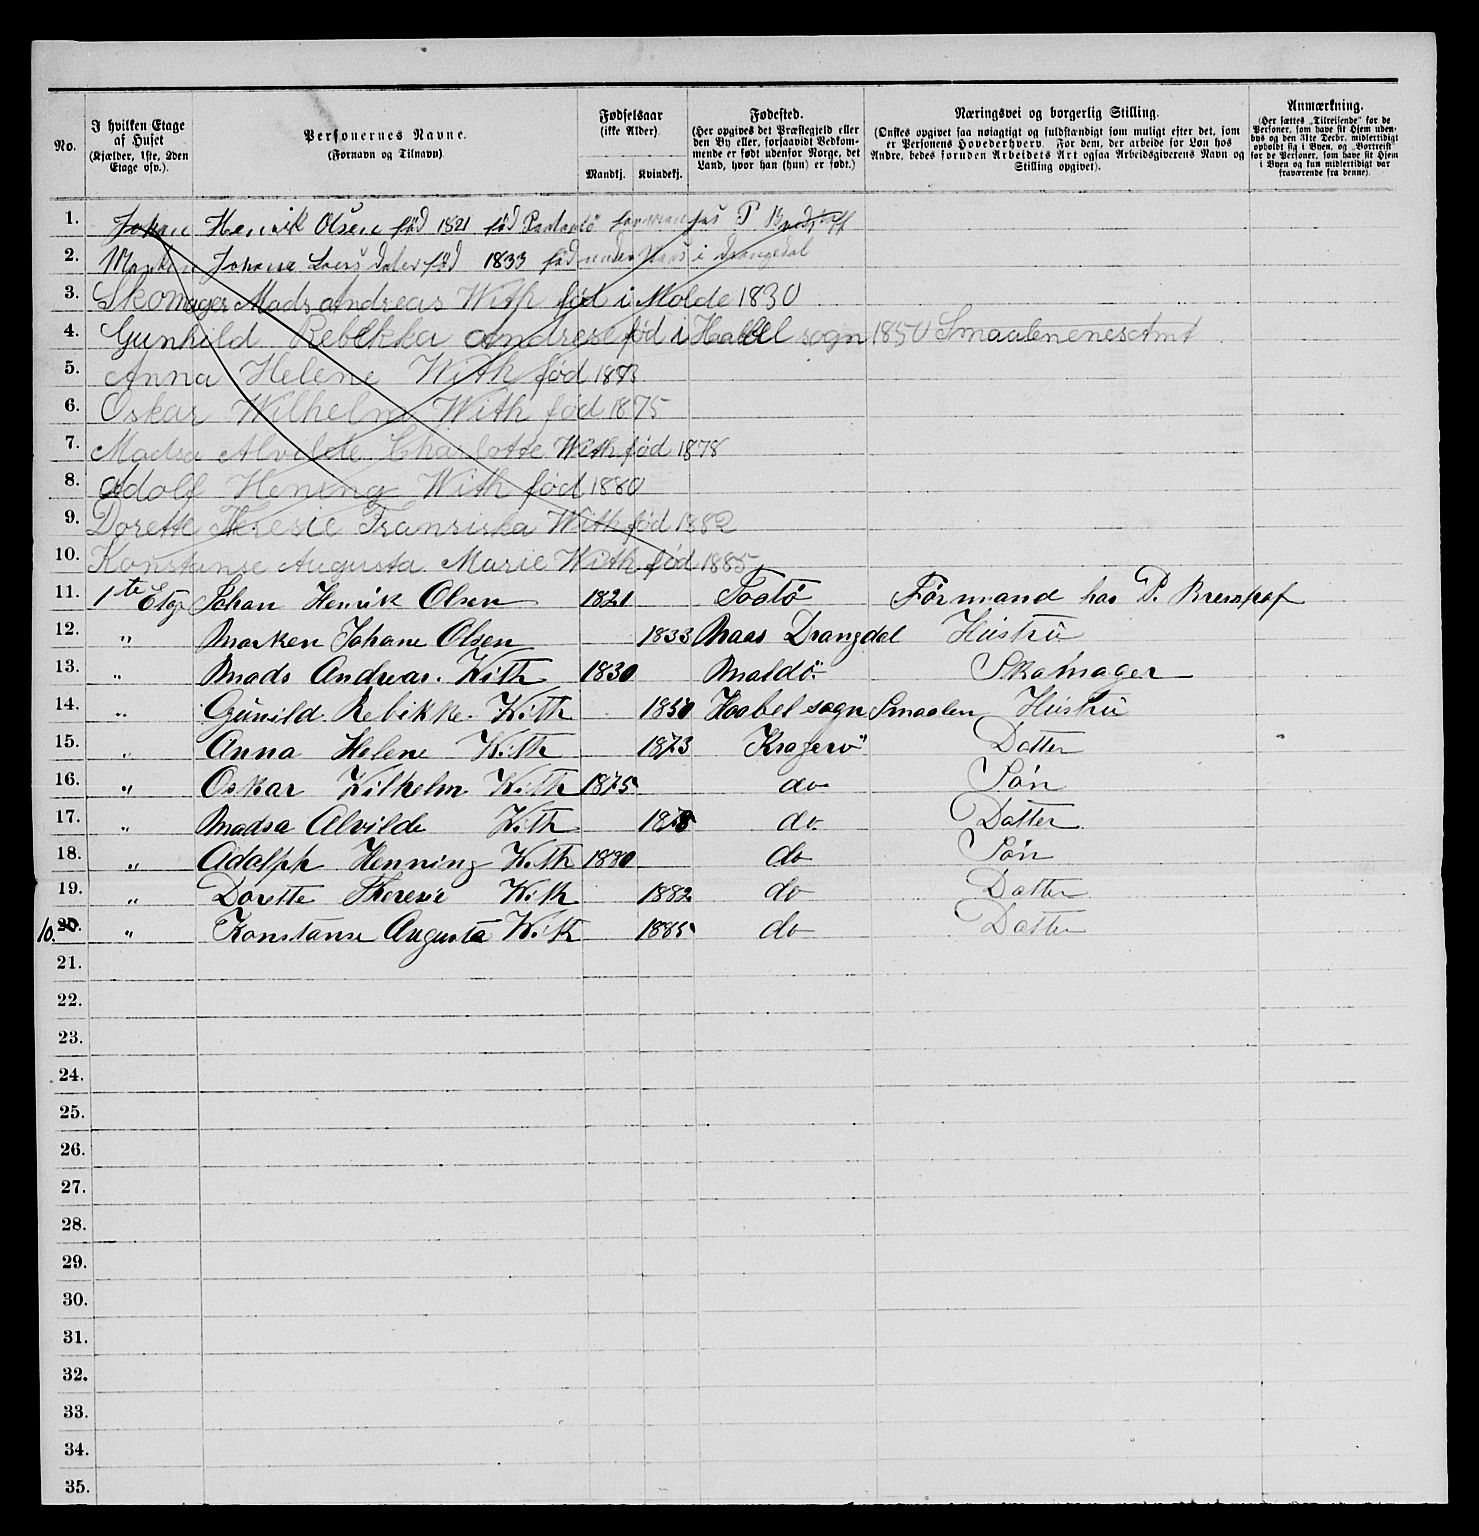 No.
I hvilken Etage af Huset (Kjælder, 1ste, 2den Etage osv.).
Personernes Navne. (Fornavn og Tilnavn)
Fødselsaar (ikke Alder)
Mandkj. Kvindekj.
Fødested. (Her opgives det Præstegjeld eller den By eller, forsaavidt Vedkommende er født udenfor Norge, det Land, hvor han (hun) er født.)
Næringsvei og borgerlig Stilling. (Ønskes opgivet saa nøiagtigt og fuldstændigt som muligt efter det, som er Personens Hovederhverv. For dem, der arbeide for Løn hos Andre, bedes foruden Arbeidets Art ogsaa Arbeidsgiverens Navn og Stilling opgivet).
Anmærkning. (Her sættes „Tilreisende" for de Personer, som have sit Hjem udenbys og den 31te Decbr. midlertidigt opholdt sig i Byen, og „Bortreist" for de Personer, som have sit Hjem i Byen og kun midlertidigt var fraværende fra denne).
1. Johan Henrik Olsen fød 1821 fød forman has P
2. Marken Johane Larsdater fød 1833 fød under i Drangedal
3. Skomager Mads Andreas With fød i Molde 1830
4. Gunhild Rebekka Andrese fød i Haabel sogn 1850 SmaalenenesAmt
5. Anna Helene With fød 1873
6. Oskar Wilhelm With fød 1875
7. Madsa Alvilde Charlotte With fød 1878
8. Adolf Hening With fød 1880
9. Dorette Theresie Fransiska With fød 1882
10. Konstanse Augusta Marie With fød 1885
11. 1te Etage Johan Henrik Olsen 1821 Tootø Formand hos P.
12. " Marken Johane Olsen 1833 Naas Drangdal Hustru
13. " Mads Andreas. With 1830 Maldø Skomager
14. " Gunild Rebikke. With 1850 Haabel sogn Smaalen Hustru
15. " Anna Helene With 1873 Kragerø Datter
16. " Oskar Wilhelm With 1875 do Søn
17. " Madsa Alvilde With 1878 do. Datter
18. " Adolph Henning With 1880 do Søn
19. " Dorette Theresie With 1882 do Datter
10. 20. " Konstanse Augusta With 1885 do Datter
21.
22.
23.
24.
25.
26.
27.
28.
29.
30.
31.
32.
33.
34.
35.